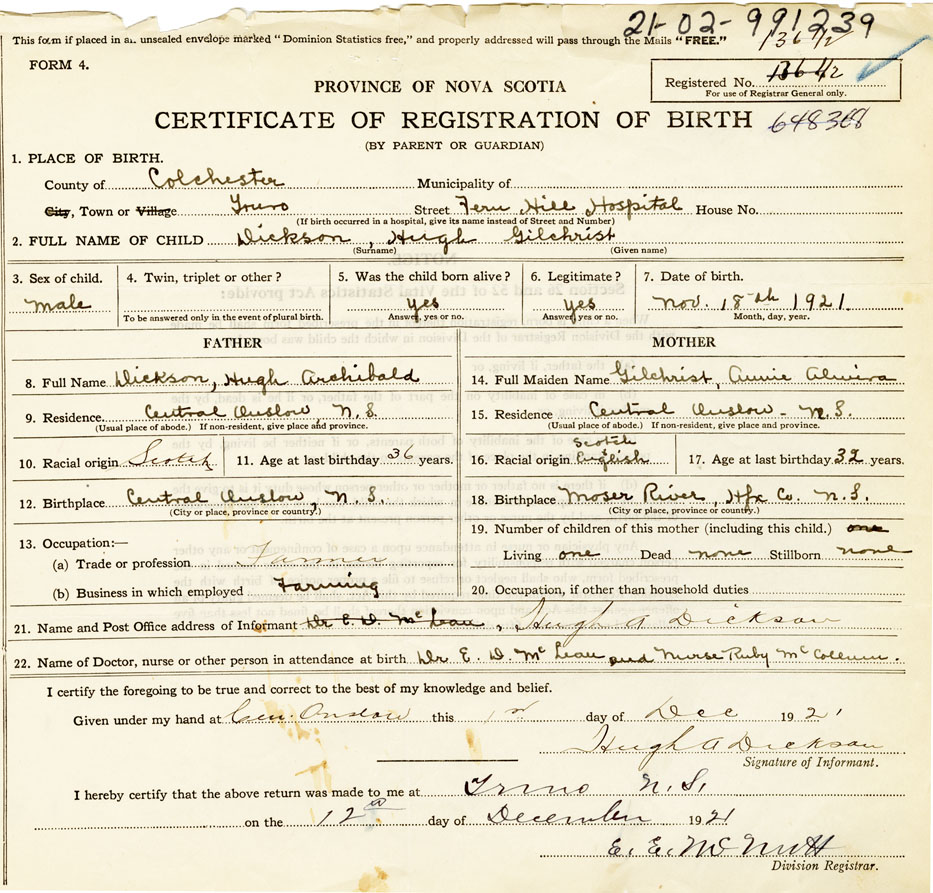 21-02-991239
This form if placed in an unsealed envelope marked "Dominion Statistics free," and properly addressed will pass through the Mails "FREE."
13642
FORM 4.
Registered No. 13642
For use of Registrar General only.
PROVINCE OF NOVA SCOTIA
CERTIFICATE OF REGISTRATION OF BIRTH
(BY PARENT OR GUARDIAN)
1. PLACE OF BIRTH.
County of Colchester Municipality of
City, Town or Village Truro Street Fern Hill Hospital House No.
(If birth occurred in a hospital, give its name instead of Street and Number)
2. FULL NAME OF CHILD Dickson, Hugh Gilchrist
(Surname) (Given name)
3. Sex of child. 4. Twin, triplet or other? 5. Was the child born alive? 6. Legitimate? 7. Date of birth.
Male yes yes Nov. 18th 1921
To be answered only in the event of plural birth. Answer, yes or no. Answer, yes or no. Month, day, year.
FATHER MOTHER
8. Full Name Dickson, Hugh Archibald 14. Full Maiden Name Gilchrist, Annie Almira
9. Residence Central Onslow, N.S. 15. Residence Central Onslow - N.S.
(Usual place of abode.) If non-resident, give place and province. (Usual place of abode.) If non-resident, give place and province.
Scotch
10. Racial origin Scotch 11. Age at last birthday 36 years. 16. Racial origin English 17. Age at last birthday 32 years.
12. Birthplace Central Onslow, N.S. 18. Birthplace Moser River, Hfx Co. N.S.
(City or place, province or country.) (City or place, province or country.)
13. Occupation:— 19. Number of children of this mother (including this child.) one
(a) Trade or profession Farmer Living one Dead none Stillborn none
(b) Business in which employed Farming 20. Occupation, if other than household duties
21. Name and Post Office address of Informant Dr E. D. McLean, Hugh A Dickson
22. Name of Doctor, nurse or other person in attendance at birth Dr E. D. McLean and Nurse Ruby McCollum.
I certify the foregoing to be true and correct to the best of my knowledge and belief.
Given under my hand at Cen. Onslow this 1st day of Dec 1921
Hugh A Dickson
Signature of Informant.
I hereby certify that the above return was made to me at Truro N.S.
on the 12th day of December 1921
E. E. McNutt
Division Registrar.